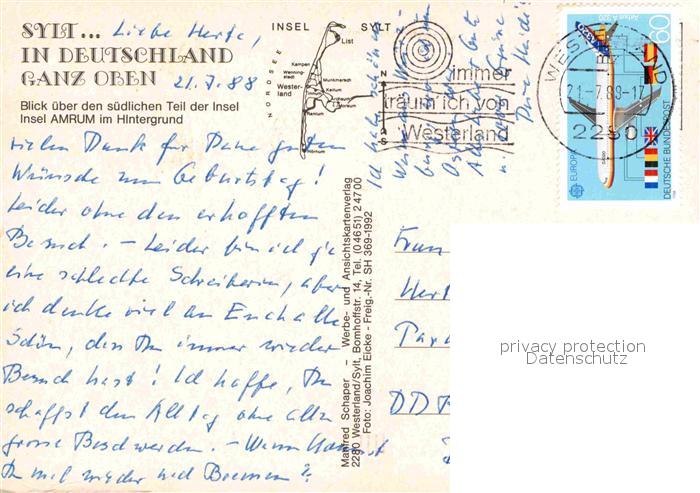 SYLT...
IN DEUTSCHLAND
GANZ OBEN
Liebe Herta,
21.7.88
Blick über den südlichen Teil der Insel
Insel AMRUM im HIntergrund
vielen Dank für Deine guten
Wünsche zum Geburtstag!
Leider ohne den erhofften
Besuch. – Leider bin ich ja
eine schlechte Schreiberin, aber
ich denke viel an Euch alle
Schön, den Du immer wieder
Besuch hast! Ich hoffe, Du
schaffst den Alltag ohne allzu
grosse Beschwerden. – Wann kannst
Du mal wieder nach Bremen?
Ich habe
Deine
INSEL SYLT
List
Kampen
Wenning-
stedt
Munkmarsch
Wester-
land
Keitum
Morsum
Rantum
Hörnum
NORDSEE
N
S
immer
träum ich von
Westerland
WESTERLAND
21.-7.88-17
2280
Airbus A 320
60
EUROPA
DEUTSCHE BUNDESPOST
Manfred Schaper – Werbe- und Ansichtskartenverlag
2280 Westerland/Sylt, Bomhoffstr. 14, Tel. (04651) 24700
Foto: Joachim Eicke - Freig.-Nr. SH 369-1992
Frau
Hert
DDR
privacy protection
Datenschutz